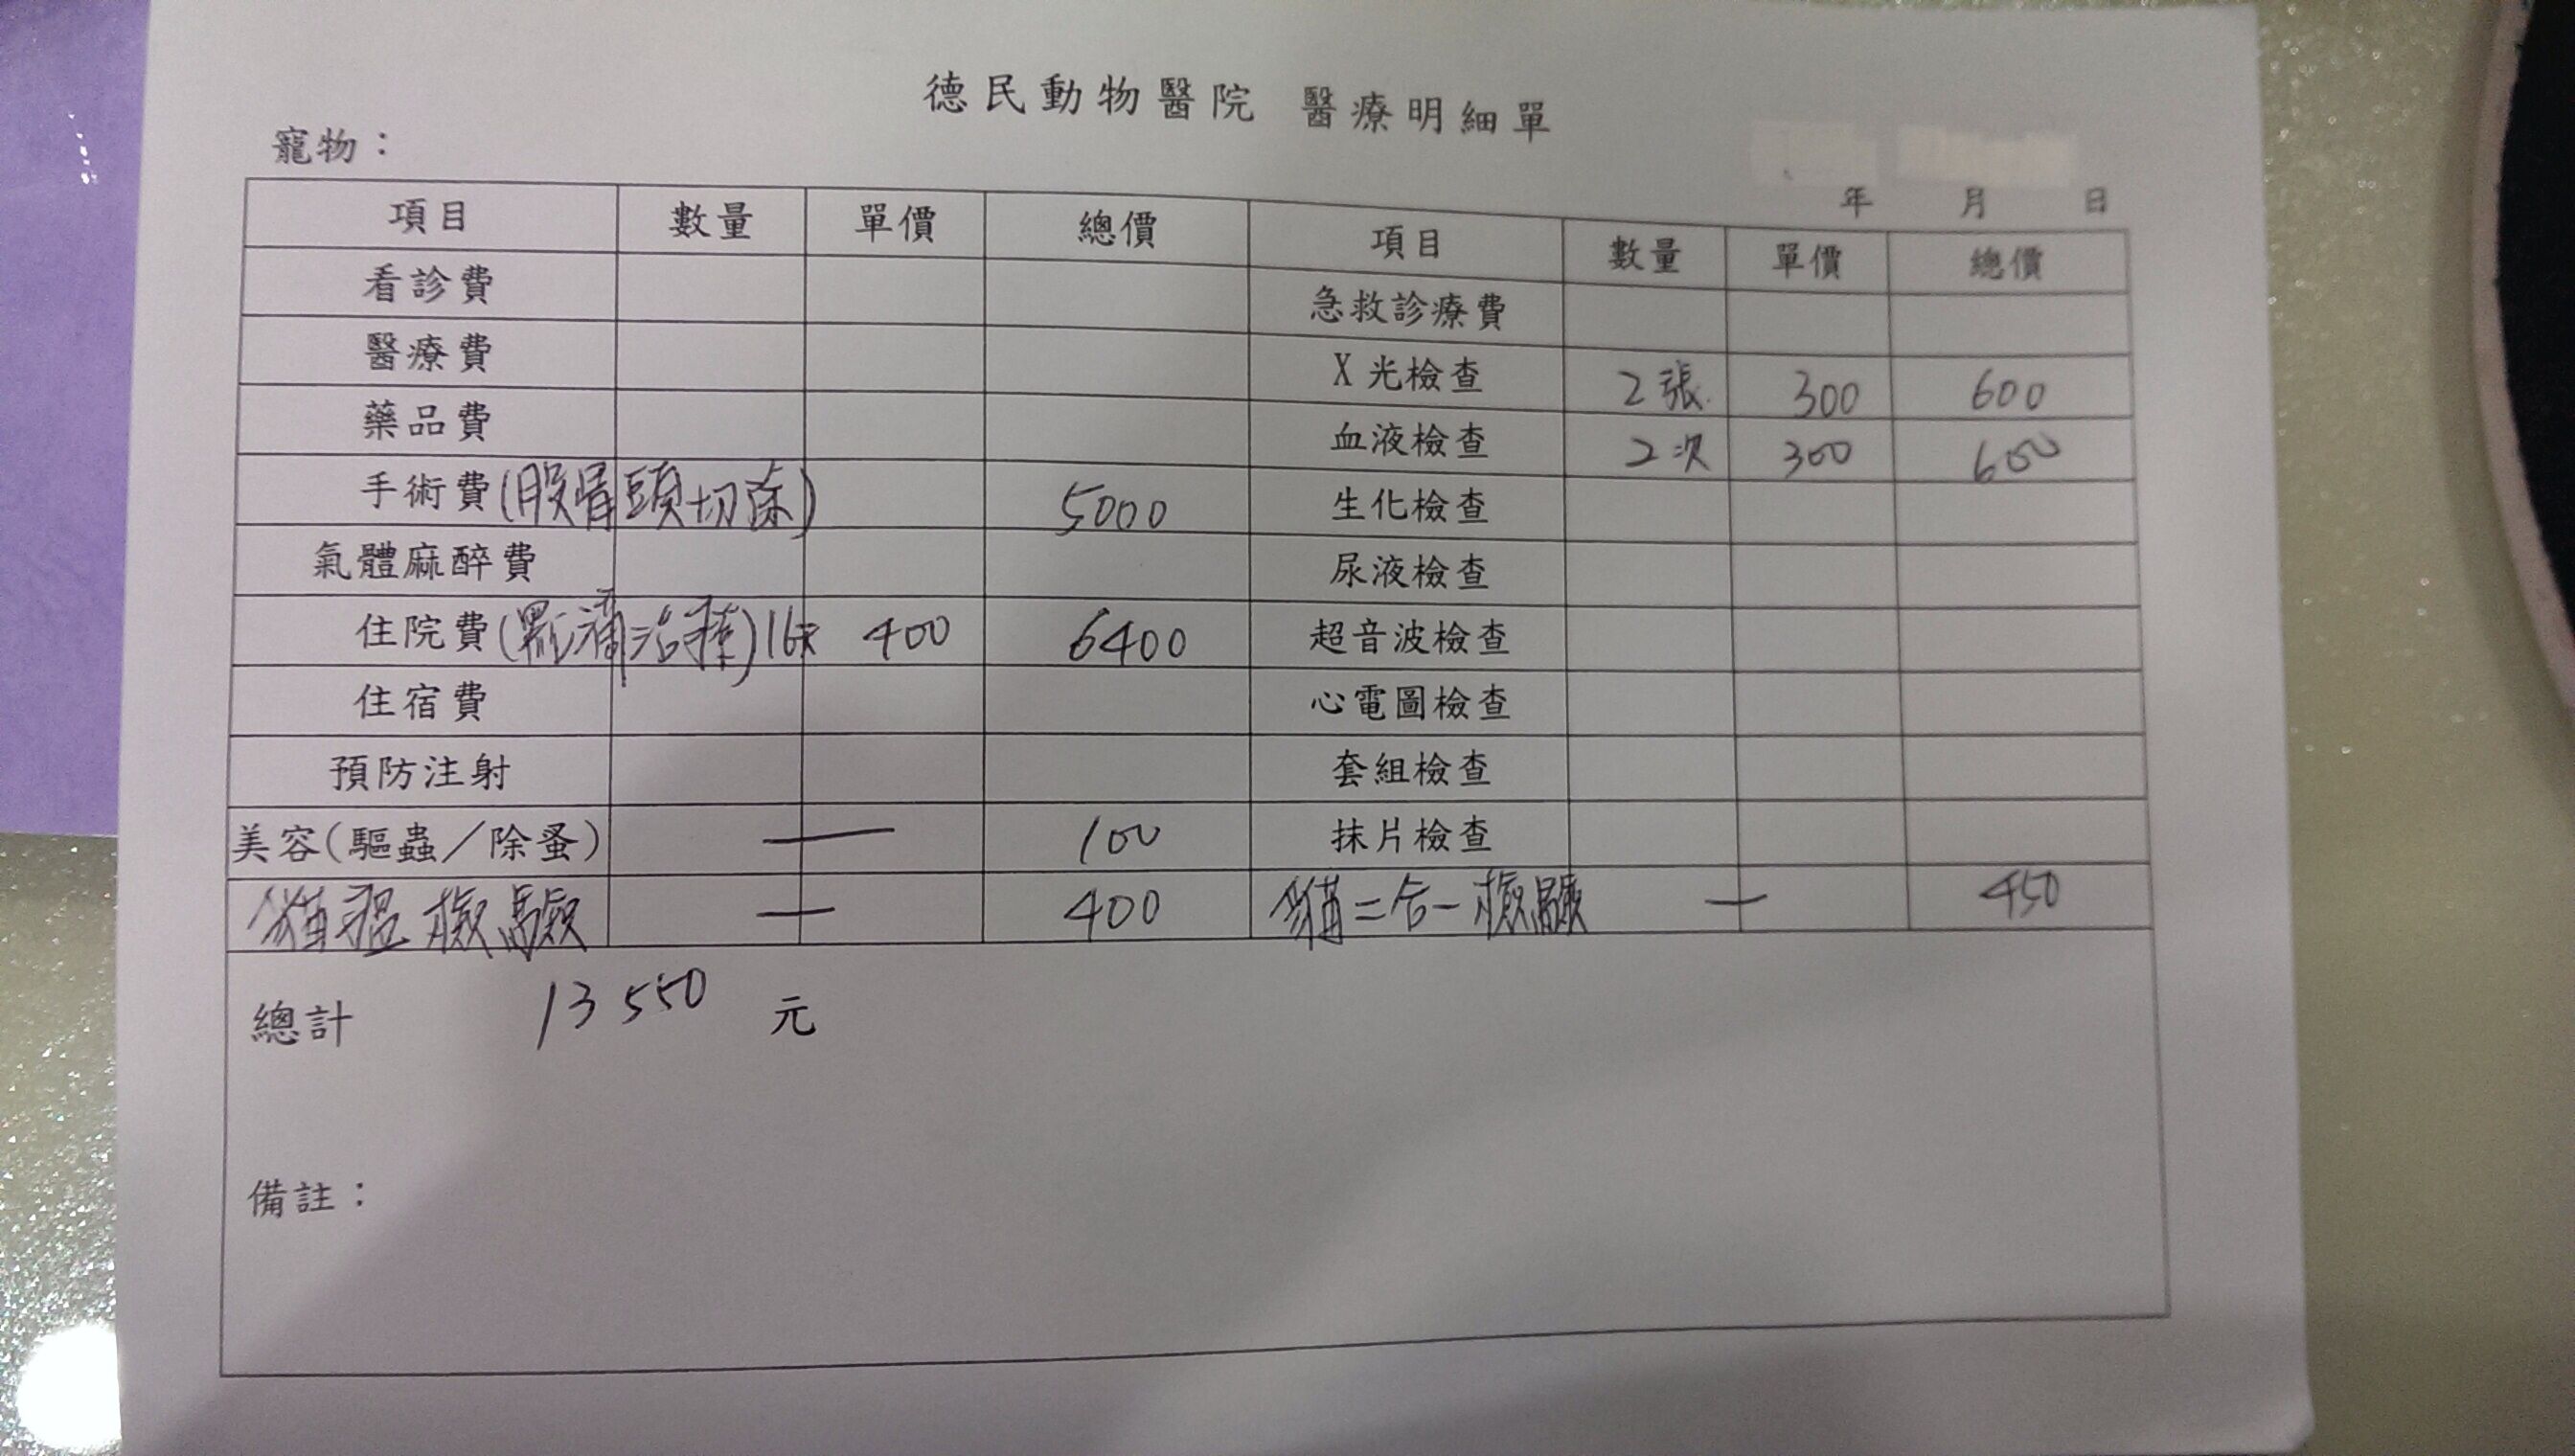 德民動物醫院 醫療明細單
寵物：
年 月 日
項目 數量 單價 總價 項目 數量 單價 總價
看診費 急救診療費
醫療費 X光檢查 2張 300 600
藥品費 血液檢查 2次 300 600
手術費(股骨頭切除) 5000 生化檢查
氣體麻醉費 尿液檢查
住院費(點滴治療)16天 400 6400 超音波檢查
住宿費 心電圖檢查
預防注射 套組檢查
美容(驅蟲／除蚤) — 100 抹片檢查
貓瘟檢驗 — 400 貓二合一檢驗 — 450
總計 13550 元
備註：